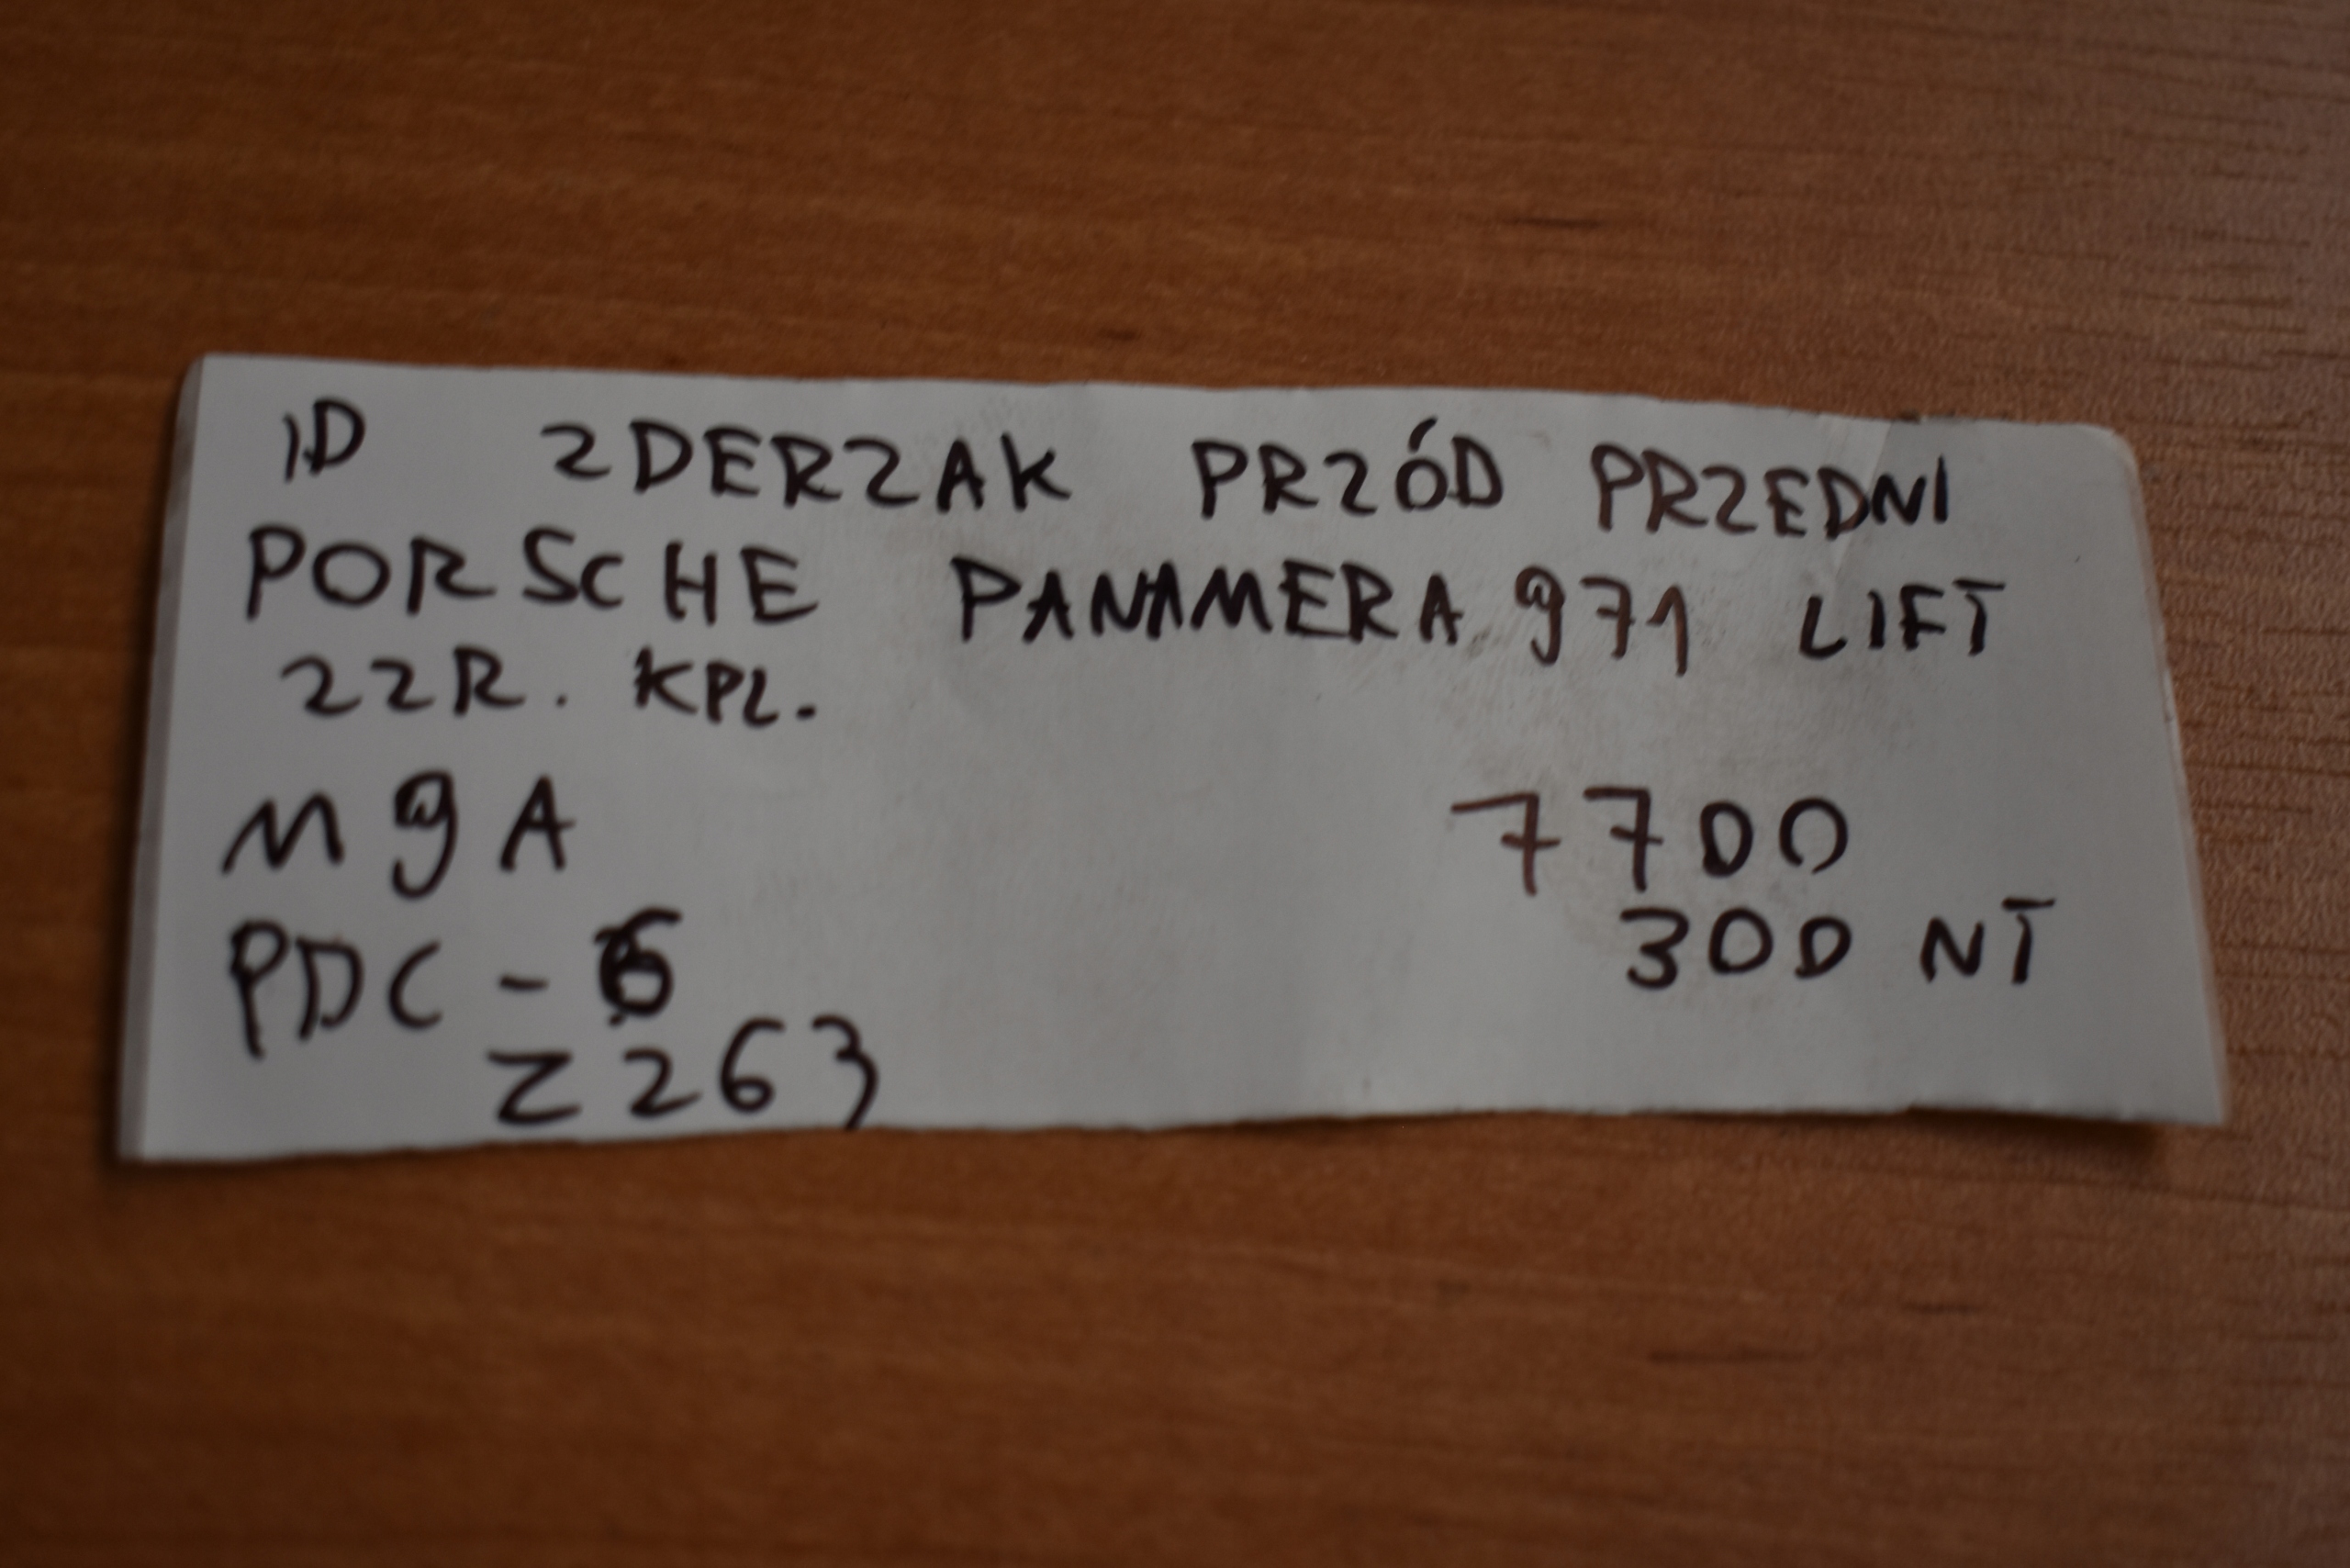 ID ZDERZAK PRZÓD PRZEDNI
PORSCHE PANAMERA 971 LIFT
22R. KPL.
M9A 7700
PDC - 6 300 NT
Z263